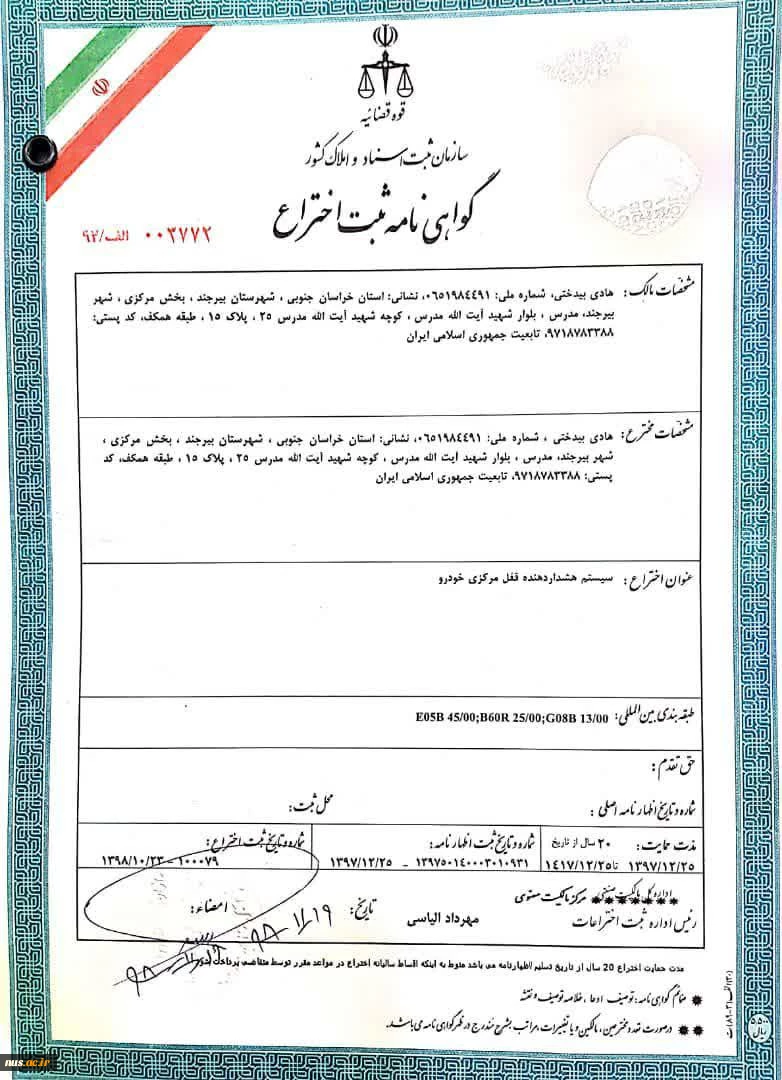 قوه قضائیه
سازمان ثبت اسناد و املاک کشور
گواهی نامه ثبت اختراع
۰۰۲۷۷۲ الف/۹۲
مشخصات مالک: هادی بیدختی، شماره ملی: ۰۶۵۱۹۸۴۴۹۱، نشانی: استان خراسان جنوبی ، شهرستان بیرجند ، بخش مرکزی ، شهر
بیرجند، مدرس ، بلوار شهید آیت الله مدرس ، کوچه شهید آیت الله مدرس ۲۵ ، پلاک ۱۵ ، طبقه همکف، کد پستی:
۹۷۱۸۷۸۳۳۸۸، تابعیت جمهوری اسلامی ایران
مشخصات مخترع: هادی بیدختی ، شماره ملی: ۰۶۵۱۹۸۴۴۹۱، نشانی: استان خراسان جنوبی ، شهرستان بیرجند ، بخش مرکزی ،
شهر بیرجند، مدرس ، بلوار شهید آیت الله مدرس ، کوچه شهید آیت الله مدرس ۲۵ ، پلاک ۱۵ ، طبقه همکف، کد
پستی: ۹۷۱۸۷۸۳۳۸۸، تابعیت جمهوری اسلامی ایران
عنوان اختراع: سیستم هشداردهنده قفل مرکزی خودرو
طبقه بندی بین المللی: E05B 45/00;B60R 25/00;G08B 13/00
حق تقدم:
شماره و تاریخ اظهارنامه اصلی: محل ثبت:
مدت حمایت: ۲۰ سال از تاریخ
۱۳۹۷/۱۲/۲۵ تا ۱۴۱۷/۱۲/۲۵
شماره و تاریخ ثبت اظهارنامه:
۱۳۹۷۵۰۱۴۰۰۰۳۰۱۰۹۳۱ - ۱۳۹۷/۱۲/۲۵
شماره و تاریخ ثبت اختراع:
۱۰۰۰۷۹ - ۱۳۹۸/۱۰/۲۳
اداره کل مالکیت صنعتی مرکز مالکیت معنوی
رئیس اداره ثبت اختراعات مهرداد الیاسی تاریخ: ۹۸/۱۱/۱۹ امضاء:
مدت حمایت اختراع 20 سال از تاریخ تسلیم اظهارنامه می باشد منوط به اینکه اقساط سالیانه اختراع در مواعد مقرر توسط متقاضی پرداخت شود
* ضمائم گواهی نامه: توصیف ، ادعا ، خلاصه توصیف و نقشه
** درصورت تعدد مخترعین، مالکین و یا تغییرات، مراتب به شرح مندرج در ظهر گواهی نامه می باشد.
nus.ac.ir